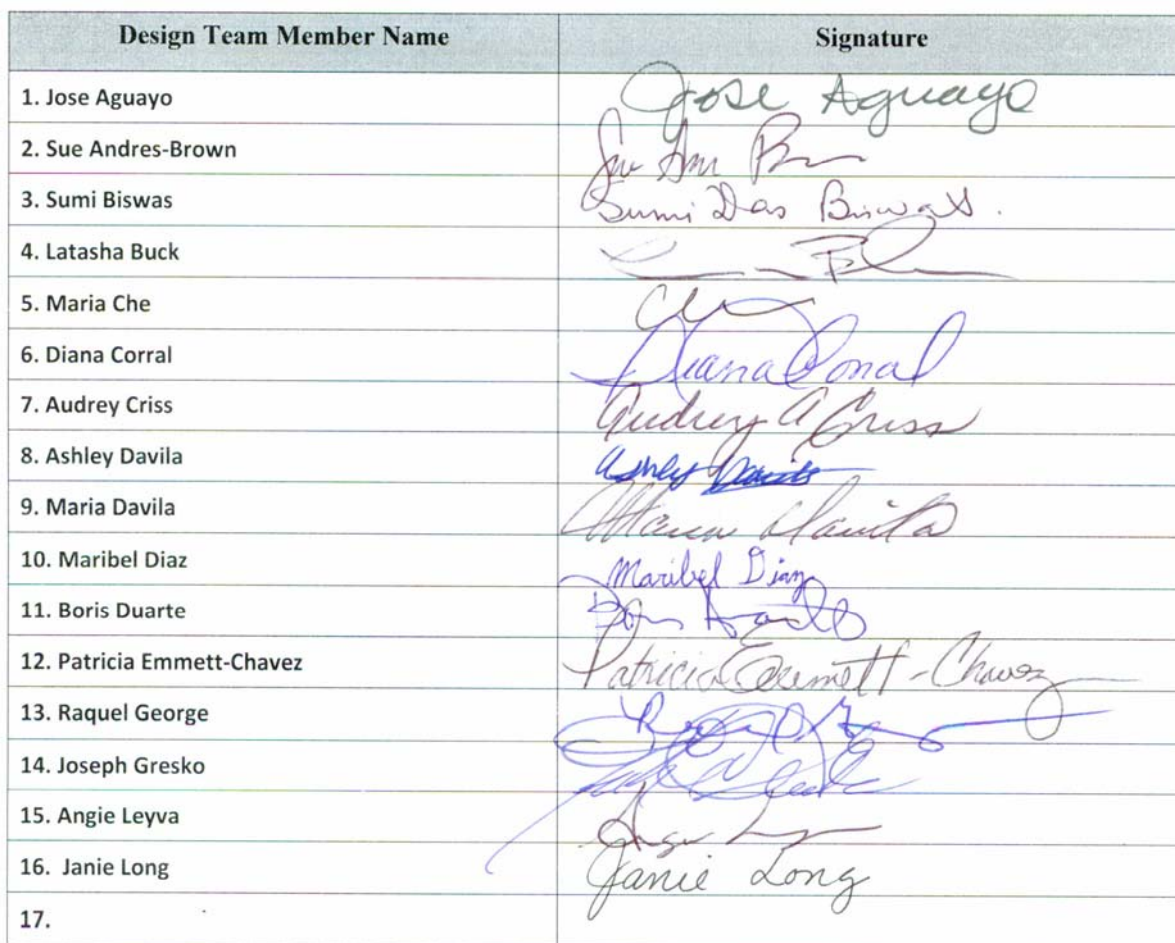 Design Team Member Name Signature
1. Jose Aguayo Jose Aguayo
2. Sue Andres-Brown
3. Sumi Biswas Sumi Das Biswas.
4. Latasha Buck
5. Maria Che
6. Diana Corral Diana Corral
7. Audrey Criss Audrey A Criss
8. Ashley Davila Ashley Davila
9. Maria Davila Maria Davila
10. Maribel Diaz Maribel Diaz
11. Boris Duarte
12. Patricia Emmett-Chavez Patricia Emmett-Chavez
13. Raquel George
14. Joseph Gresko
15. Angie Leyva
16. Janie Long Janie Long
17.